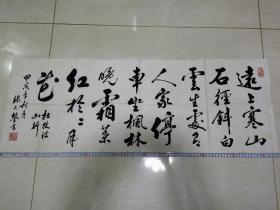 遠上寒山
石徑斜白
雲生處有
人家停
車坐楓林
晚霜葉
紅於二月
花
杜牧詩
山行